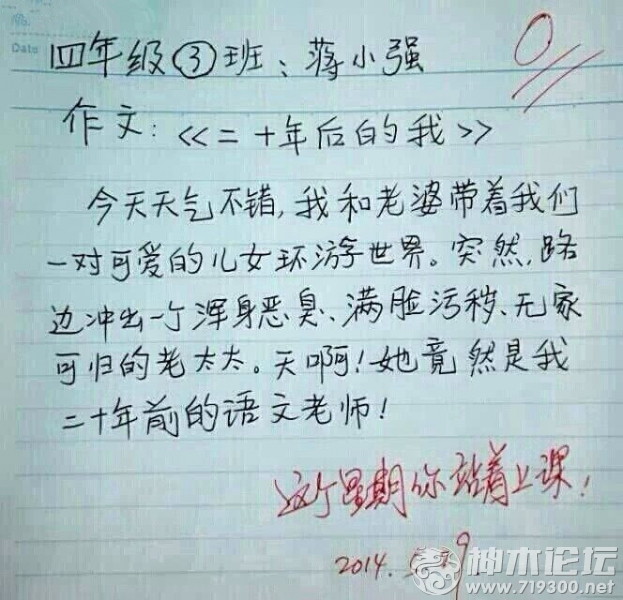 Date
四年级③班：蒋小强
0
作文：《二十年后的我》
今天天气不错，我和老婆带着我们
一对可爱的儿女环游世界。突然，路
边冲出一个浑身恶臭、满脸污秽、无家
可归的老太太。天啊！她竟然是我
二十年前的语文老师！
这个星期你站着上课！
2014.
神木论坛
www.719300.net